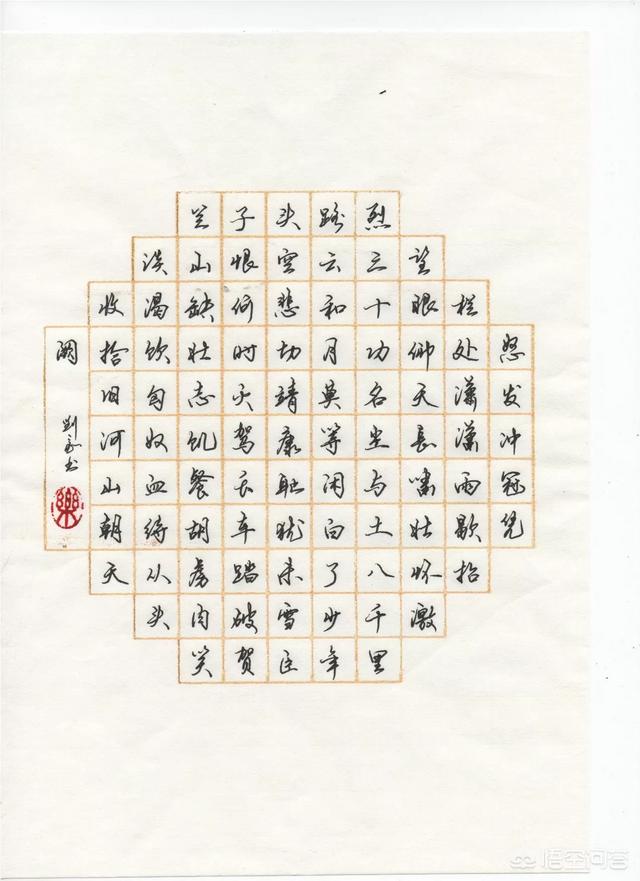 怒发冲冠凭
栏处潇潇雨歇抬
望眼仰天长啸壮怀激
烈三十功名尘与土八千里
路云和月莫等闲白了少年
头空悲切靖康耻犹未雪臣
子恨何时灭驾长车踏破贺
兰山缺壮志饥餐胡虏肉笑
谈渴饮匈奴血待从头
收拾旧河山朝天
阙
劉书
樂
悟空问答